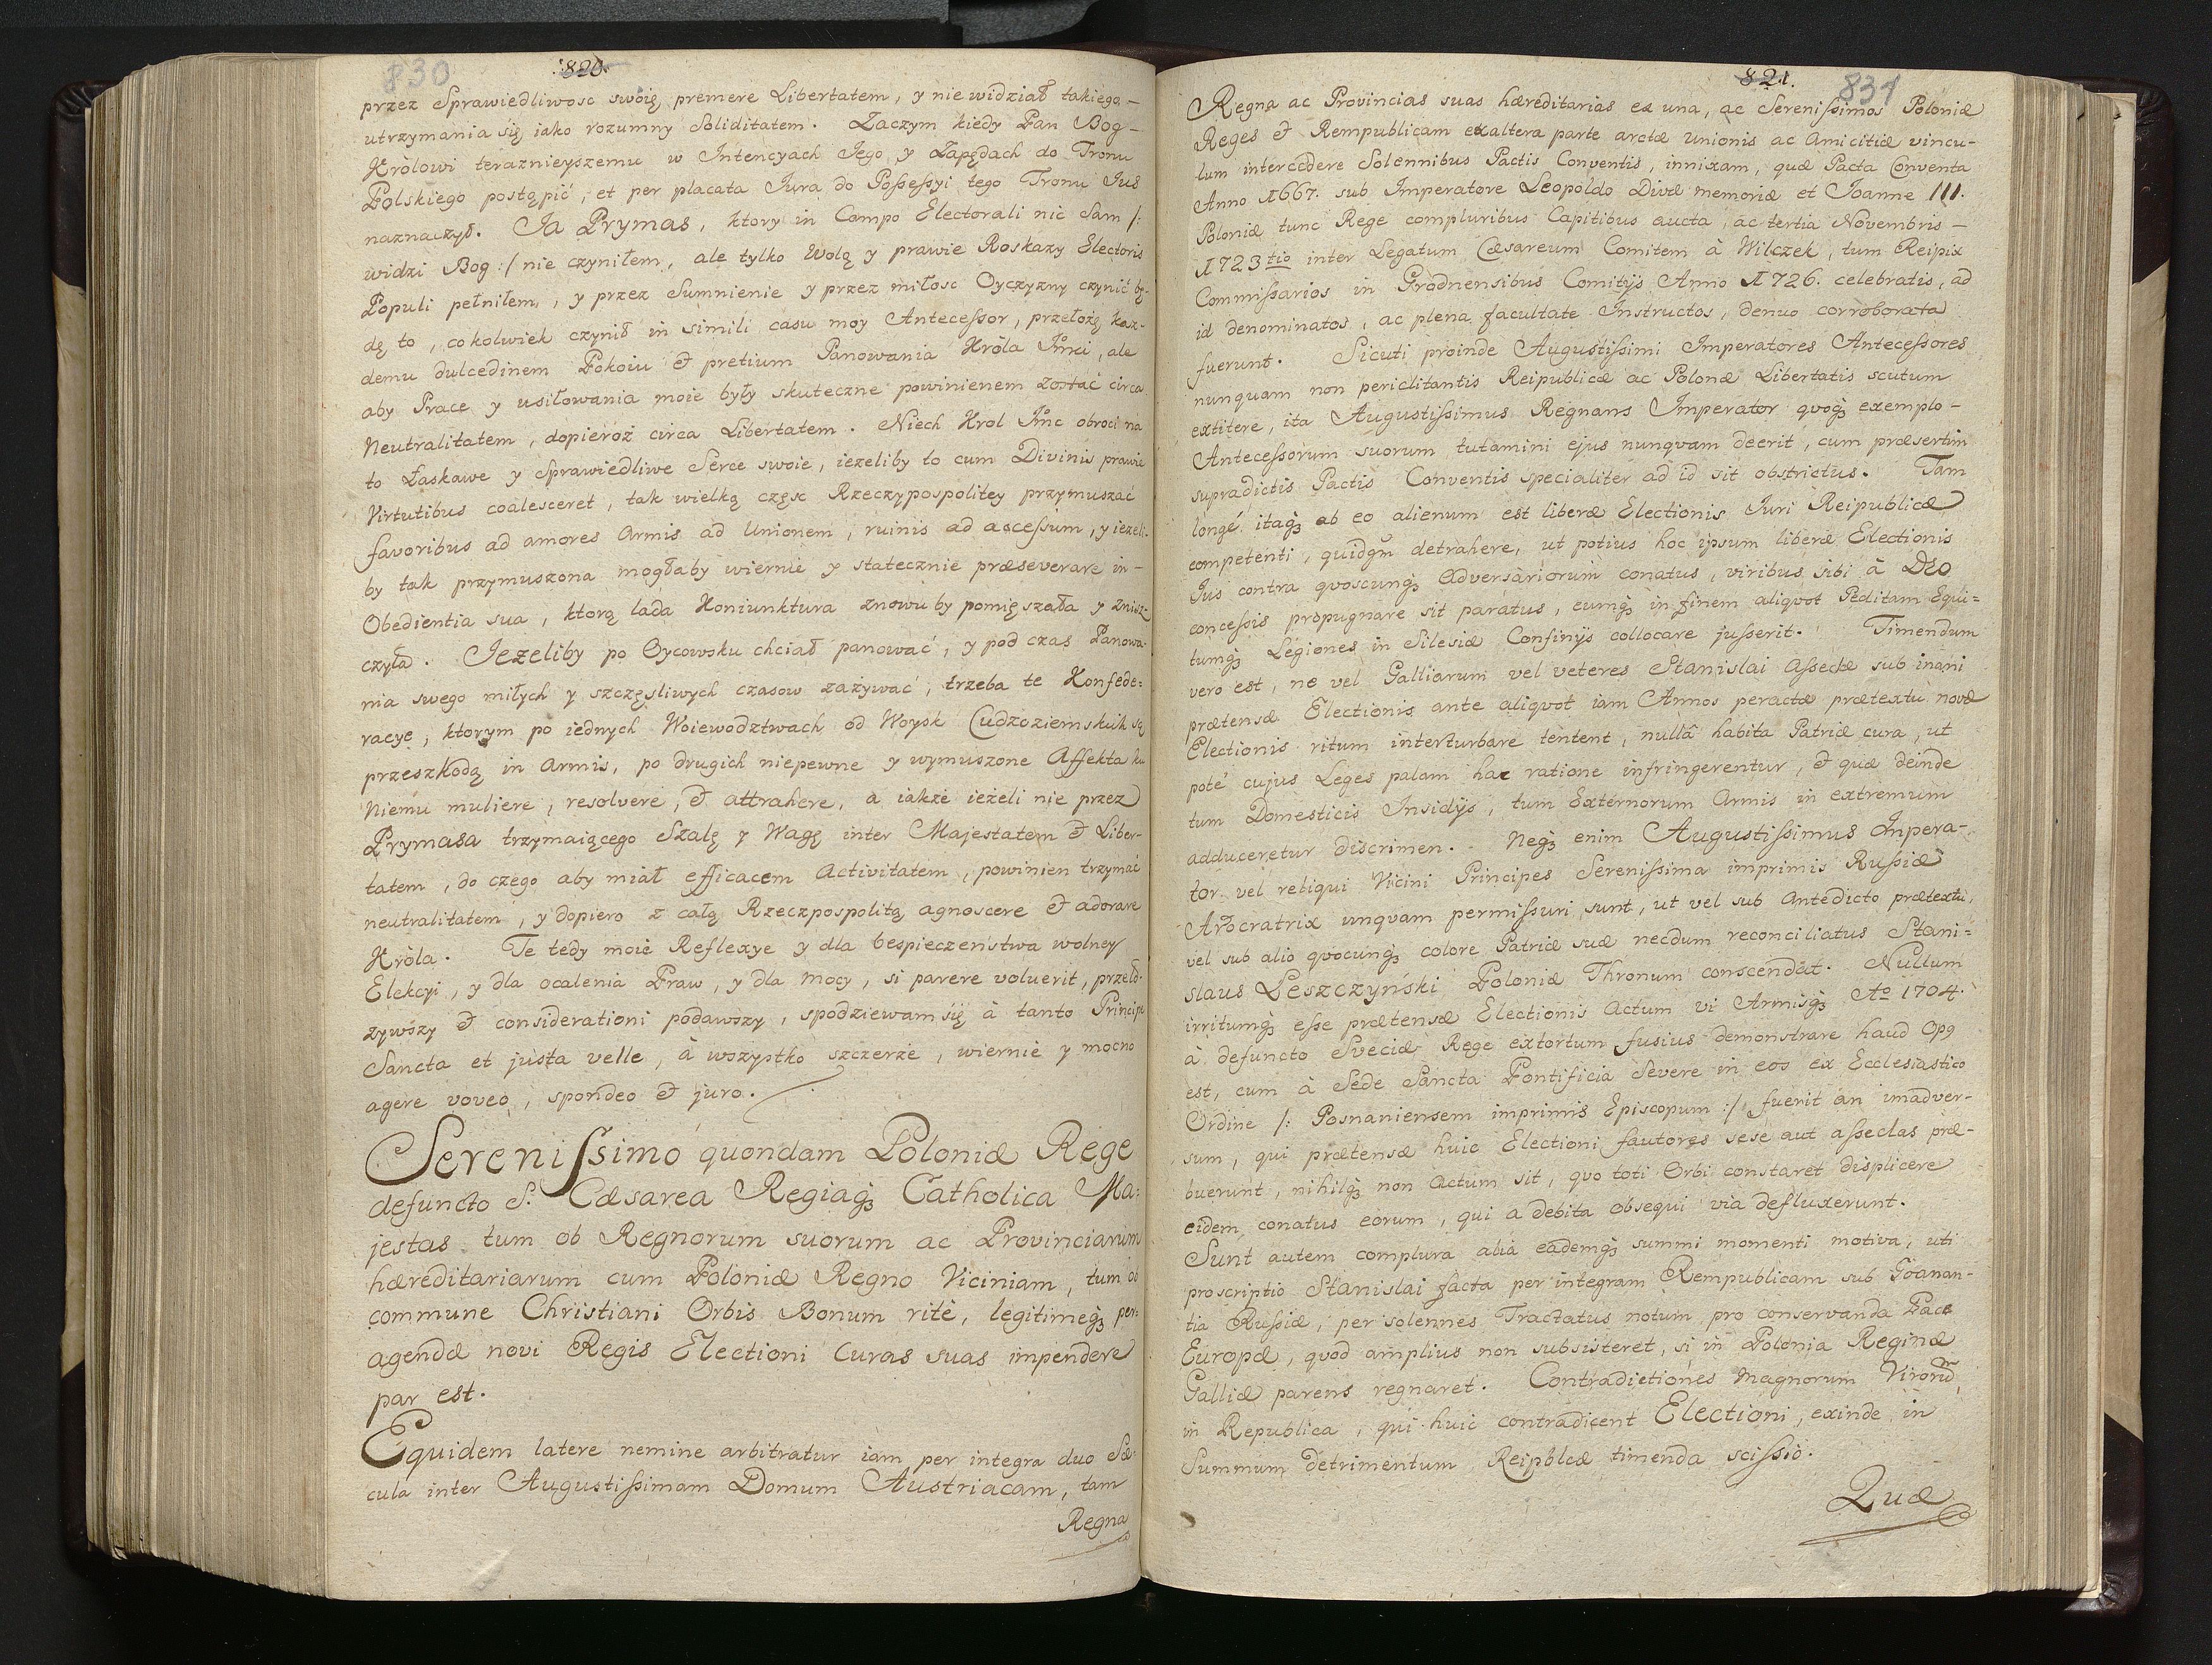 830 820.
przez Sprawiedliwosc swoię premere Libertatem, y nie widział takiego –
utrzymania się iako rozumny Soliditatem. Zaczym kiedy Pan Bog –
Królowi teraznieyszemu w Intencyach Jego y Zapędach do Tronu
Polskiego postąpić, et per placata Jura do Possessyi tego Tronu Jus
naznaczył. Ja Prymas, ktory in Campo Electorali nic Sam /:
widzi Bog :/ nie czyniłem, ale tylko Wolą y prawie Roskazy Electoris
Populi pełniłem, y przez Sumnienie y przez miłosc Oyczyzny czynić bę-
dę to, cokolwiek czynił in simili casu moy Antecessor, przełożę kaz-
demu dulcedinem Pokoiu & pretium Panowania Króla Jmci, ale
aby Prace y usiłowania moie były skuteczne powinienem zostać circa
Neutralitatem, dopieroż circa Libertatem. Niech Krol Jmc obroci na
to Łaskawe y Sprawiedliwe Serce swoie, iezeliby to cum Divinis prawie
Virtutibus coalesceret, tak wielką częsc Rzeczypospolitey przymuszać
favoribus ad amores Armis ad Unionem, ruinis ad accessum, y iezeli-
by tak przymuszona mogłaby wiernie y statecznie præseverare in –
Obedientia sua, ktorą lada Koniunktura znowu by pomięszała y znisz-
czyła. Jezeliby po Oycowsku chciał panować, y pod czas Panowa-
nia swego miłych y szczęsliwych czasow zażywać, trzeba te Konfede=
racye, ktorym po iednych Woiewodztwach od Woysk Cudzoziemskich są
przeszkodą in Armis, po drugich niepewne y wymuszone Affekta ku
Niemu muliere, resolvere, & attrahere, a iakże ieżeli nie przez
Prymasa trzymaiącego Szalę y Wagę inter Majestatem & Liber-
tatem, do czego aby miał efficacem Activitatem, powinien trzymać
neutralitatem, y dopiero z całą Rzeczpospolitą agnoscere & adorare
Króla. Te tedy moie Reflexye y dla bespieczeństwa wolney
Elekcyi, y dla ocalenia Praw, y dla mocy, si parere voluerit, przeło-
żywszy & considerationi podawszy, spodziewam się à tanto Principe
Sancta et justa velle, à wszystko szczerze, wiernie y mocno
agere voveo, spondeo & juro.
Serenissimo quondam Poloniæ Rege
defuncto S. Cæsarea Regiaq3 Catholica Ma:
jestas tum ob Regnorum suorum ac Provinciarum
hæreditariarum cum Poloniæ Regno Viciniam, tum ob
commune Christiani Orbis Bonum ritè, legitimeq3 per:
agendæ novi Regis Electioni Curas suas impendere
par est.
Equidem latere nemine arbitratur iam per integra duo Sæ-
cula inter Augustissimam Domum Austriacam, tam
Regna
821. 831
Regna ac Provincias suas hæreditarias ex una, ac Serenissimos Poloniæ
Reges & Rempublicam ex altera parte arctæ unionis ac Amicitiæ vincu-
lum intercedere Solennibus Pactis Conventis, innixam, quæ Pacta Conventa
Anno 1667. sub Imperatore Leopoldo Divæ memoriæ et Joanne III.
Poloniæ tunc Rege compluribus Capitibus aucta, ac tertia Novembris –
1723 tio inter Legatum Cæsareum Comitem à Wilczek, tum Reipix
Commissarios in Grodnensibus Comitijs Anno 1726. celebratis, ad
id denominatos, ac plena facultate Instructos, denuo corroborata
fuerunt. Sicuti proinde Augustissimi Imperatores Antecessores
nunquam non periclitantis Reipublicæ ac Polonæ Libertatis scutum
extitere, ita Augustissimus Regnans Imperator quoq3 exemplo –
Antecessorum suorum tutamini ejus nunqvam deerit, cum præsertim
supradictis Pactis Conventis specialiter ad id sit obstrictus. Tam
longè itaq3 ab eo alienum est liberæ Electionis Juri Reipublicæ
competenti, quidqm̃ detrahere, ut potius hoc ipsum liberæ Electionis
Jus contra qvoscunq3 Adversariorum conatus, viribus sibi à DEO
concessis propugnare sit paratus, eumq3 in finem aliqvot Peditam Equi=
tumq3 Legiones in Silesiæ Confinijs collocare jusserit. Timendum
vero est, ne vel Galliarum vel veteres Stanislai Asseclæ sub inani
prætensæ Electionis ante aliqvot iam Annos peractæ prætextu novæ
Electionis ritum interturbare tentent, nullâ habita Patriæ cura, ut
potè cujus Leges palam hac ratione infringerentur, & quæ deinde
tum Domesticis Insidijs, tum Externorum Armis in extremum
adduceretur discrimen. Neq3 enim Augustissimus Impera-
tor vel reliqui Vicini Principes Serenissima imprimis Russiæ
Atocratrix unqvam permissuri sunt, ut vel sub Antedicto prætextu,
vel sub alio qvocunq3 colore Patriæ suæ necdum reconciliatus Stani=
slaus Leszczyński Poloniæ Thronum conscendat. Nullum
irritumq3 esse prætensæ Electionis Actum vi Armisq3 Ao 1704.
à defuncto Sveciæ Rege extortum fusius demonstrare haud Opq
est, cum à Sede Sancta Pontificia Severe in eos ex Ecclesiastico
Ordine /: Posnaniensem imprimis Episcopum :/ fuerit an imadver-
sum, qui prætensæ huic Electioni fautores sese aut asseclas præ-
buerunt, nihilq3 non Actum sit, quo toti Orbi constaret displicere
eidem conatus eorum, qui a debita obsequi via defluxerunt.
Sunt autem complura alia eademq3 summi momenti motiva, uti
proscriptio Stanislai facta per integram Rempublicam sub Goanan-
tia Russiæ, per solennes Tractatus notum pro conservanda Pace
Europæ, quod amplius non subsisteret, si in Polonia Reginæ
Galliæ parens regnaret. Contradictiones Magnorum Virorũ
in Republica, qui huic contradicent Electioni, exinde in
Summum detrimentum Reipblcæ timenda scissio.
Quæ